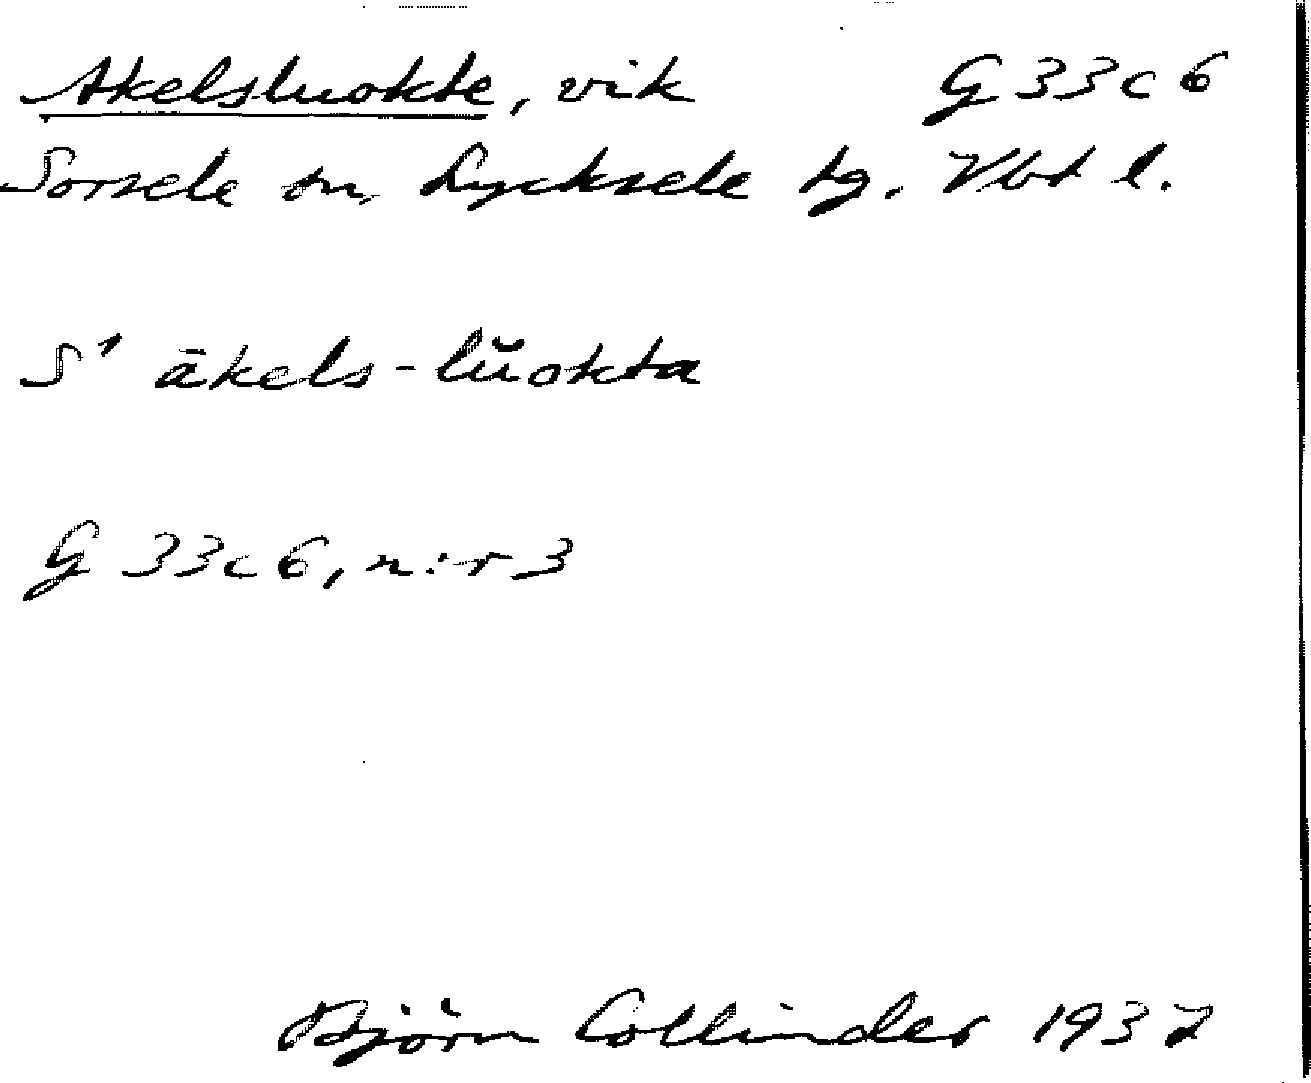 Akelsluokte, vik G 33 c 6
Sorsele sn, Lycksele tg. Vbt l.
S' ākels-lŭokta
G 33 c 6, n:r 3
Björn Collinder 1937